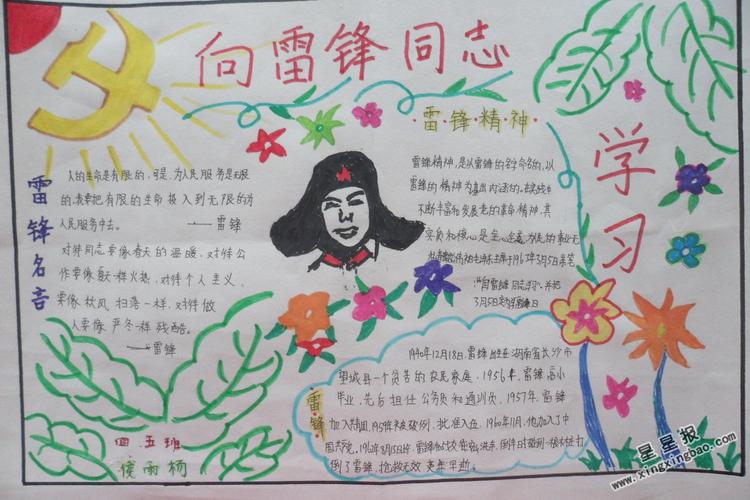 向雷锋同志
学习
雷锋名言
人的生命是有限的，可是，为人民服务是无限
的，我要把有限的生命投入到无限的为
人民服务中去。
——雷锋
对待同志要像春天的温暖，对待工
作要像夏天一样火热，对待个人主义
要像秋风扫落一样，对待敌
人要像严冬一样残酷。
——雷锋
雷锋精神
雷锋精神，是以雷锋的名命名的，以
雷锋的精神为基内涵的
不断丰富和发展着的革命精神，其
实质和核心是全心全意为人民
3月5日
雷锋
1940年12月18日，雷锋出生在湖南省长沙市
望城县一个贫苦的农民家庭，1956年，雷锋高小
毕业，先后担任公务员和通讯员，1957年，雷锋
加入共青团，1959年被破例，批准入伍，1960年11月，他加入了中
国共产党，
倒了雷锋，抢救无效，英年早逝。
四五班
侯雨杨
星星报
www.xingxingbao.com